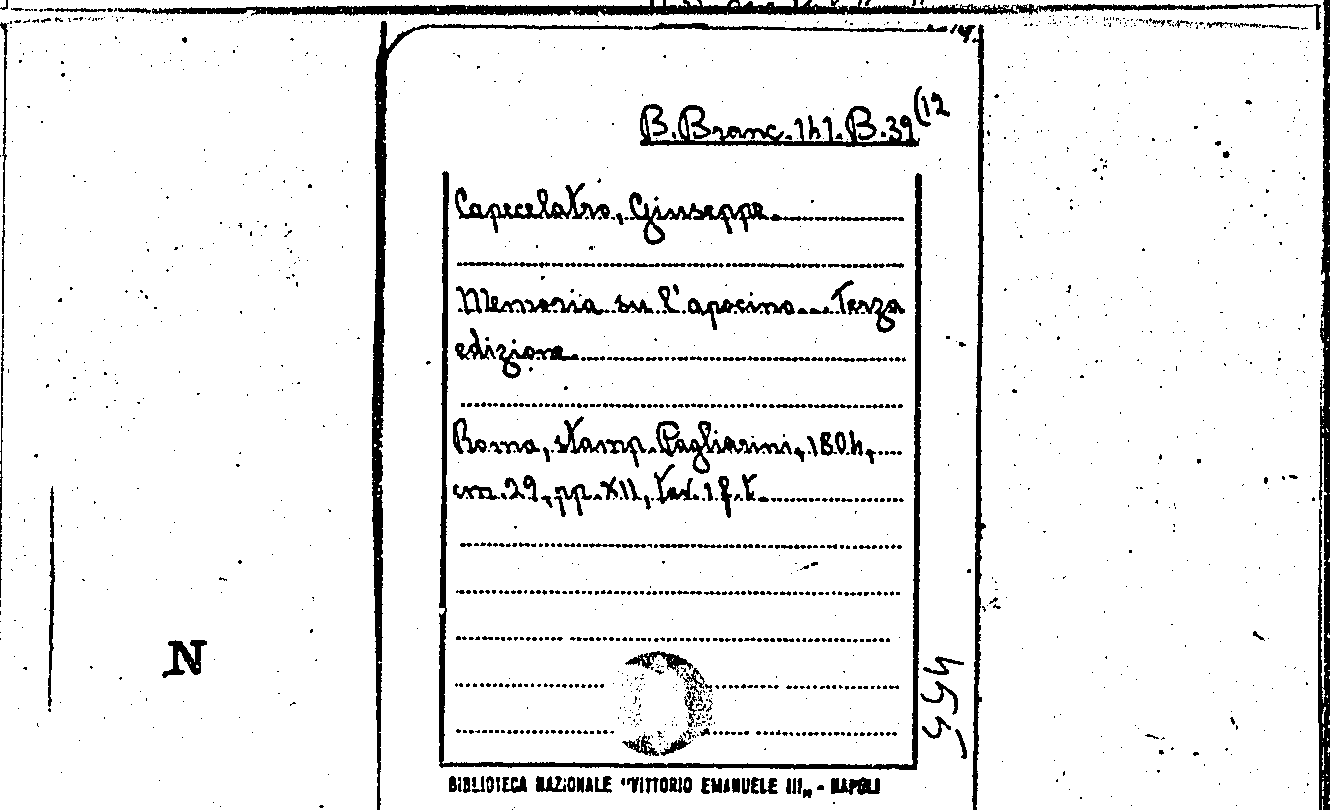 B. Branc. 141. B. 39 (12
Capecelatro, Giuseppe.
Memoria su l'apocino... Terza
edizione.
Roma, stamp. Pagliarini, 1804,
cm. 29, pp. XII, tav. 1 f. t.
N
BIBLIOTECA NAZIONALE "VITTORIO EMANUELE III„ - NAPOLI